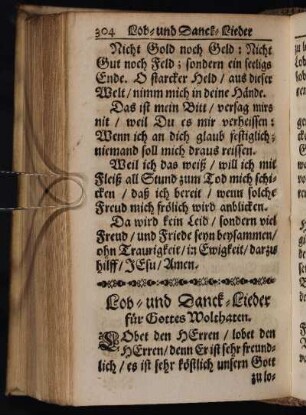 304 Lob- und Danck-Lieder
Nicht Gold noch Geld: Nicht
Gut noch Feld; sondern ein seeligs
Ende. O starcker Held / aus dieser
Welt / nimm mich in deine Hände.
Das ist mein Bitt / versag mirs
nit / weil Du es mir verheissen:
Wenn ich an dich glaub festiglich;
niemand soll mich draus reissen.
Weil ich das weiß / will ich mit
Fleiß all Stund zum Tod mich schi-
cken / daß ich bereit / wenn solche
Freud mich frölich wird anblicken.
Da wird kein Leid / sondern viel
Freud / und Friede seyn beysammen /
ohn Traurigkeit / in Ewigkeit / darzu
hilff / JEsu / Amen.
Lob- und Danck-Lieder
für Gottes Wolthaten.
LObet den HErren / lobet den
HErren / denn Er ist sehr freund-
lich / es ist sehr köstlich unsern Gott
zu lo-